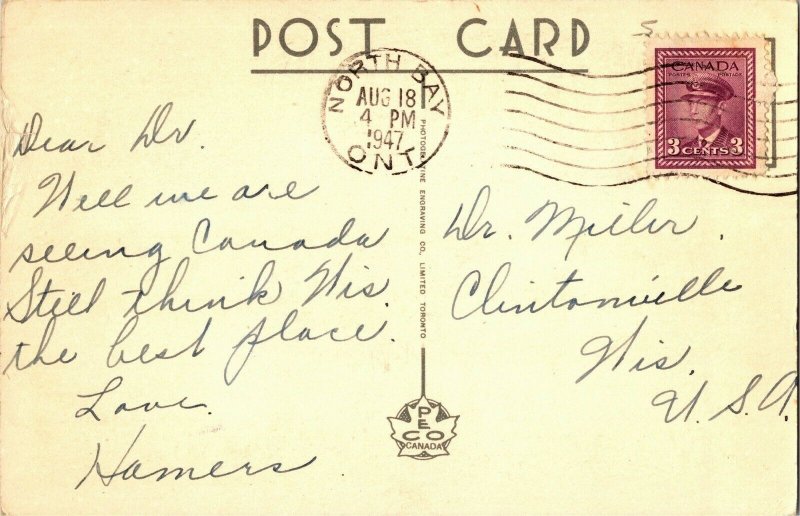 POST CARD
NORTH BAY
AUG 18
4 PM
1947
ONT.
CANADA
POSTES POSTAGE
3 CENTS 3
Dear Dr.
Well we are
seeing Canada
Still think Wis.
the best place.
Love.
Hamers
PHOTOGELATINE ENGRAVING CO. LIMITED TORONTO
PECO
CANADA
Dr. Miller.
Clintonville
Wis.
U.S.A.